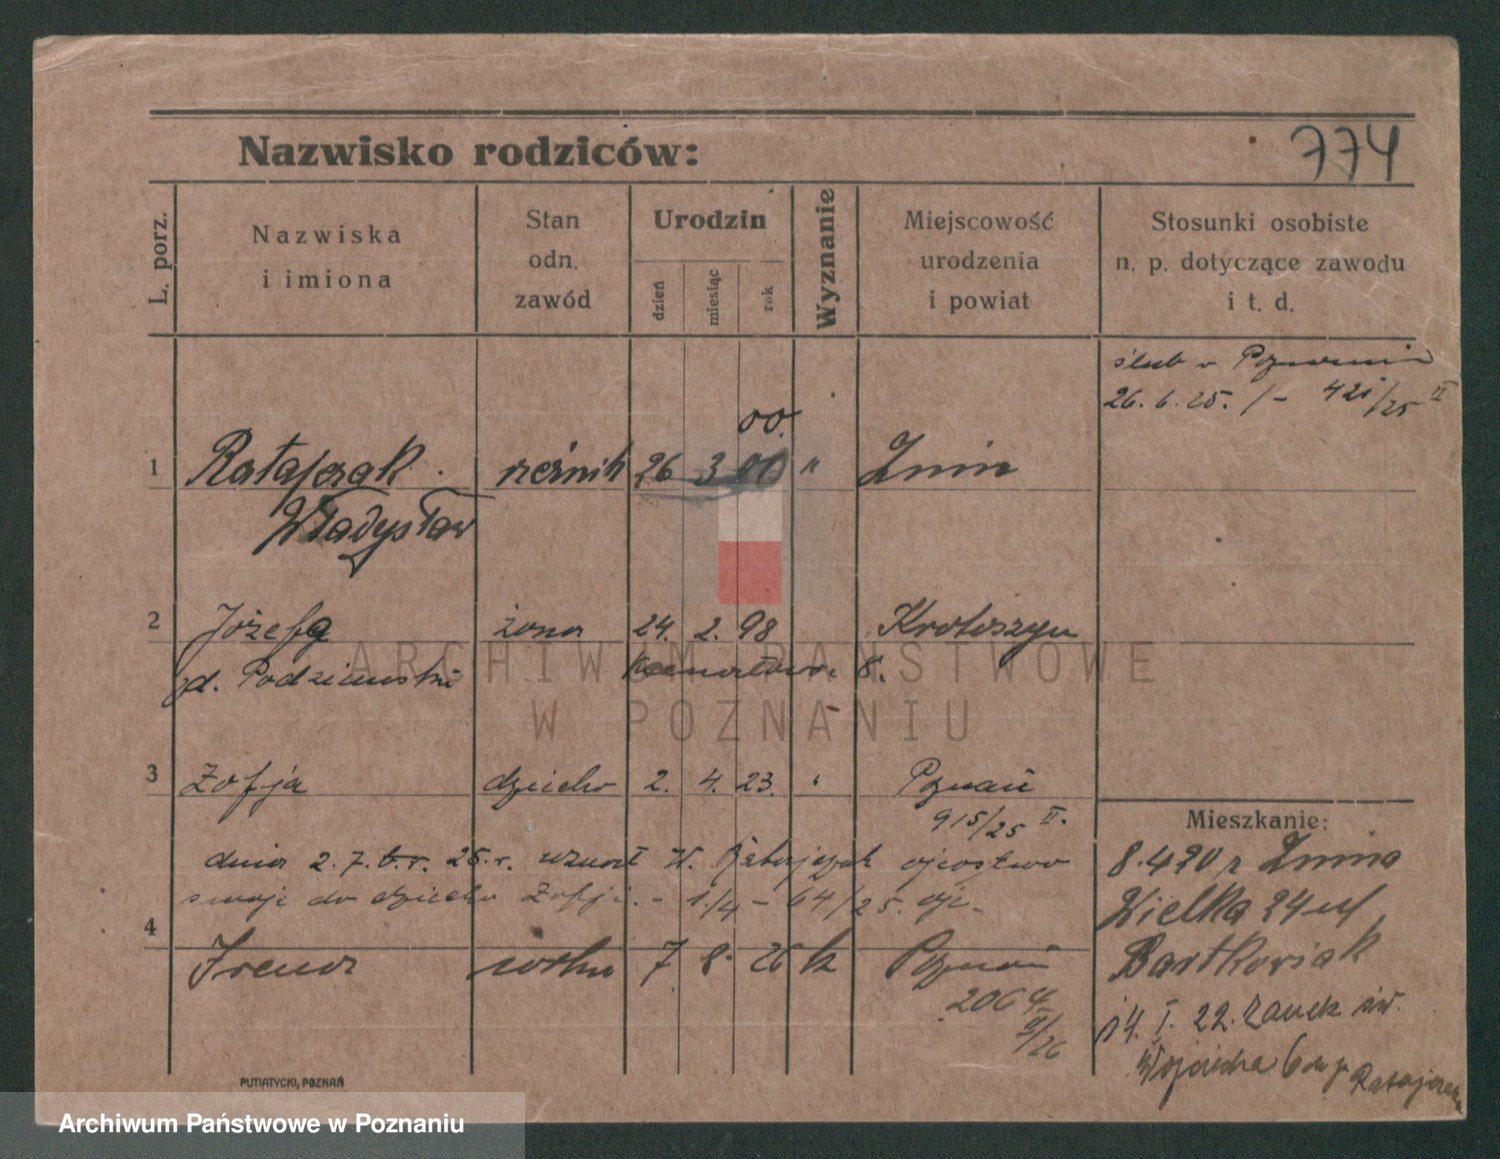 Nazwisko rodziców:
774
L. porz.
Nazwiska
i imiona
Stan
odn.
zawód
Urodzin
dzień
miesiąc
rok
Wyznanie
Miejscowość
urodzenia
i powiat
Stosunki osobiste
n. p. dotyczące zawodu
i t. d.
ślub w Poznaniu
26. 6. 25. /- 421/25 II
00.
1 Ratajczak rzeźnik 26 3 00 " Żnin
Władysław
2 Józefa żona 24. 2. 98 Krotoszyn
d. Podziemska 8.
ARCHIWUM PAŃSTWOWE
W POZNANIU
3 Zofja dziecko 2. 4. 23. " Poznań
915/25 II.
dnia 2. 7. b.r. 25. r. uznał W. Ratajczak ojcostwo
swoje do dziecka Zofji. - 1./4 - 64/25.
4
Irena córka 7 8 26 k Poznań
2064
II/26
Mieszkanie:
8.4.20 z Żnina
Wielka 24 u/
Bartkowiak
14. I. 22. Zaułek św.
Wojciecha 6 Ratajczak
PUTIATYCKI, POZNAŃ
Archiwum Państwowe w Poznaniu